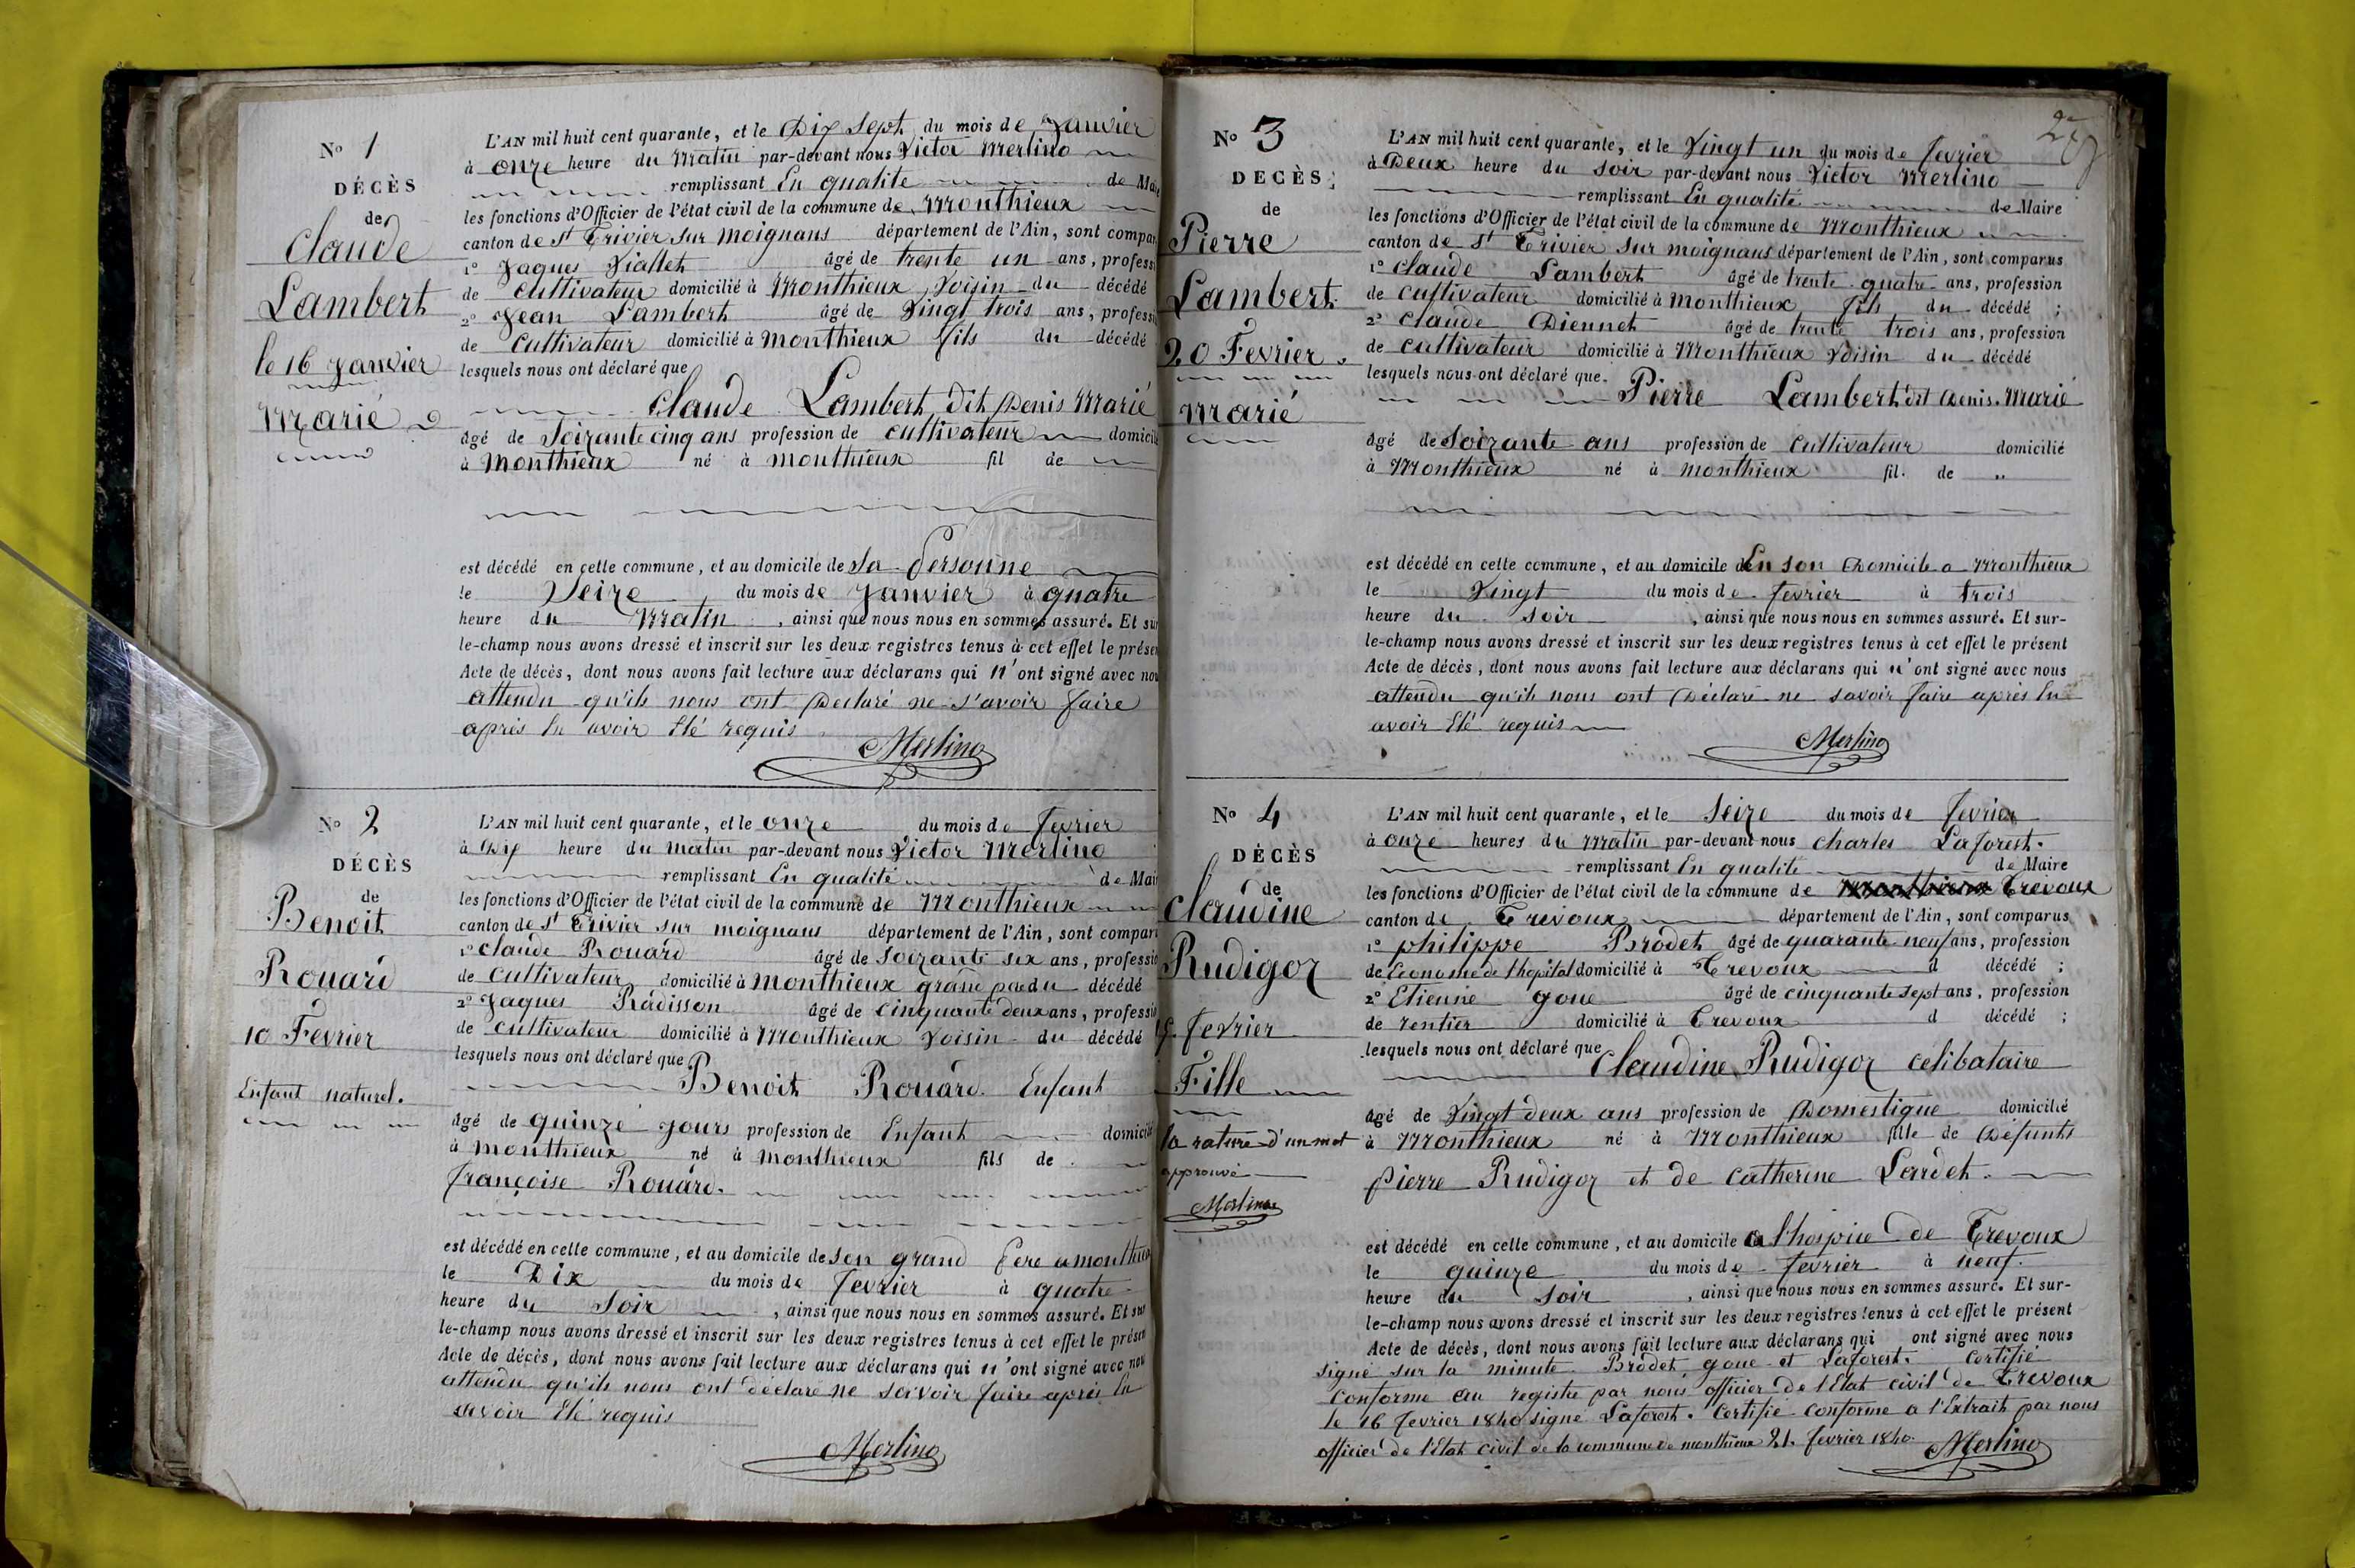 N° 1
DÉCÈS
de
Claude
Lambert
le 16 Janvier
Marié
L'AN mil huit cent quarante, et le Dix Sept du mois de Janvier
à onze heure du Matin par-devant nous Victor Merlino
remplissant En qualité de Maire
les fonctions d'Officier de l'état civil de la commune de Monthieux
canton de St Trivier sur moignans département de l'Ain, sont compar
1° Jaques Viallet âgé de trente un ans, professi
de Cultivateur domicilié à Monthieux Voisin du décédé
2° Jean Lambert âgé de Vingt trois ans, professi
de Cultivateur domicilié à Monthieux fils du décédé
lesquels nous ont déclaré que
Claude Lambert dit Denis Marié
âgé de Soizante cinq ans profession de cultivateur domicili
à Monthieux né à monthieux fil de
est décédé en cette commune, et au domicile de Sa Personne
le Seize du mois de Janvier à quatre
heure du Matin, ainsi que nous nous en sommes assuré. Et sur
le-champ nous avons dressé et inscrit sur les deux registres tenus à cet effet le présen
Acte de décès, dont nous avons fait lecture aux déclarans qui n'ont signé avec nou
attendu qu'ils nous ont Declaré ne s'avoir faire
après lu avoir Eté requis
Merlino
N° 2
DÉCÈS
de
Benoit
Rouard
10 Fevrier
Enfant naturel.
L'AN mil huit cent quarante, et le onze du mois de fevrier
à Dix heure du matin par-devant nous Victor Merlino
remplissant En qualité de Mair
les fonctions d'Officier de l'état civil de la commune de Monthieux
canton de St Trivier sur moignans département de l'Ain, sont compar
1° Claude Rouard âgé de soizante six ans, professio
de cultivateur domicilié à Monthieux grand pere du décédé
2° Jaques Radisson âgé de cinquante deux ans, professio
de cultivateur domicilié à Monthieux Voisin du décédé
lesquels nous ont déclaré que
Benoit Rouard Enfant
âgé de quinze jours profession de Enfant domicilié
à Monthieux né à Monthieux fils de
françoise Rouard.
est décédé en cette commune, et au domicile de son grand Pere a monthieu
le Dix du mois de fevrier à quatre
heure du Soir, ainsi que nous nous en sommes assuré. Et sur
le-champ nous avons dressé et inscrit sur les deux registres tenus à cet effet le présen
Acte de décès, dont nous avons fait lecture aux déclarans qui n'ont signé avec nou
attendu qu'ils nous ont déclaré ne savoir faire après lu
avoir Eté requis
Merlino
N° 3
DECÈS
de
Pierre
Lambert
20 Fevrier
Marié
L'AN mil huit cent quarante, et le Vingt un du mois de fevrier
à Deux heure du soir par-devant nous Victor Merlino
remplissant En qualité de Maire
les fonctions d'Officier de l'état civil de la commune de Monthieux
canton de St Trivier sur moignans département de l'Ain, sont comparus
1° Claude Lambert âgé de trente quatre ans, profession
de cultivateur domicilié à Monthieux fils du décédé ;
2° Claude Diennet âgé de trente trois ans, profession
de cultivateur domicilié à Monthieux Voisin du décédé
lesquels nous ont déclaré que
Pierre Lambert dit Denis. Marié
âgé de Soizante ans profession de cultivateur domicilié
à Monthieux né à monthieux fil. de „
est décédé en cette commune, et au domicile d En son Domicile a Monthieux
le Vingt du mois de fevrier à trois
heure du soir, ainsi que nous nous en sommes assuré. Et sur-
le-champ nous avons dressé et inscrit sur les deux registres tenus à cet effet le présent
Acte de décès, dont nous avons fait lecture aux déclarans qui n'ont signé avec nous
attendu qu'ils nous ont Déclaré ne savoir faire après lu
avoir Eté requis
Merlino
N° 4
DÉCÈS
de
Claudine
Rudigoz
fevrier
Fille
la rature d'un mot
approuvé
Merlino
L'AN mil huit cent quarante, et le Seize du mois de fevrier
à onze heures du Matin par-devant nous Charles Laforest.
remplissant En qualité de Maire
les fonctions d'Officier de l'état civil de la commune de Monthieux Trevoux
canton de Trevoux département de l'Ain, sont comparus
1° philippe Brodet âgé de quarante neuf ans, profession
de Econome de l'hopital domicilié à Trevoux d décédé ;
2° Etienne goue âgé de cinquante sept ans, profession
de rentier domicilié à Trevoux d décédé ;
lesquels nous ont déclaré que
Claudine Rudigoz celibataire
âgé de Vingt deux ans profession de Domestique domicilié
à Monthieux né à Monthieux fille de Défunts
pierre Rudigoz et de Catherine Lardet.
est décédé en cette commune, et au domicile a l'hospice de Trevoux
le quinze du mois de fevrier à neuf.
heure du soir, ainsi que nous nous en sommes assuré. Et sur-
le-champ nous avons dressé et inscrit sur les deux registres tenus à cet effet le présent
Acte de décès, dont nous avons fait lecture aux déclarans qui ont signé avec nous
signé sur la minute Brodet goue et Laforest. Certifié
conforme au registre par nous officier de l'Etat civil de Trevoux
le 16 fevrier 1840 signé Laforest. Certifie conforme a l'Extrait par nous
officier de l'Etat civil de la commune de monthieux 21. fevrier 1840.
Merlino